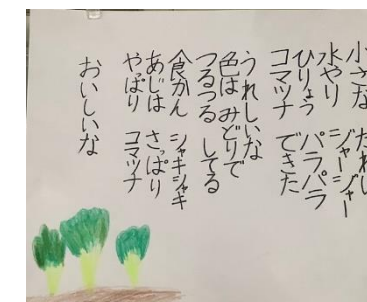 小さな たねに
水やり ジャージャー
ひりょう パラパラ
コマツナ できた
うれしいな
色は みどりで
つるつる してる
食かん シャキシャキ
あじは さっぱり
やっぱり コマツナ
おいしいな